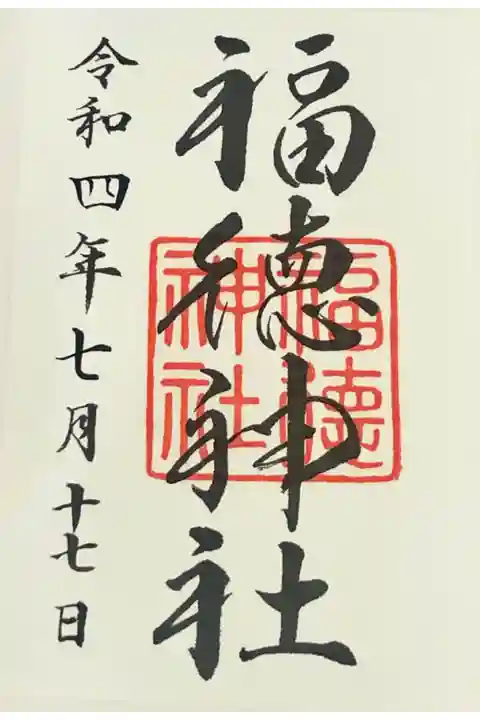 福徳神社
福徳
神社
令和四年七月十七日